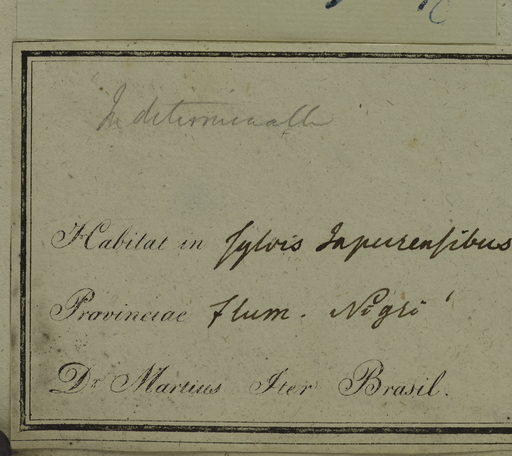 Indeterminable
Habitat in sylvis Japurensibus
Provinciae flum. Nigri
Dr. Martius Iter Brasil.